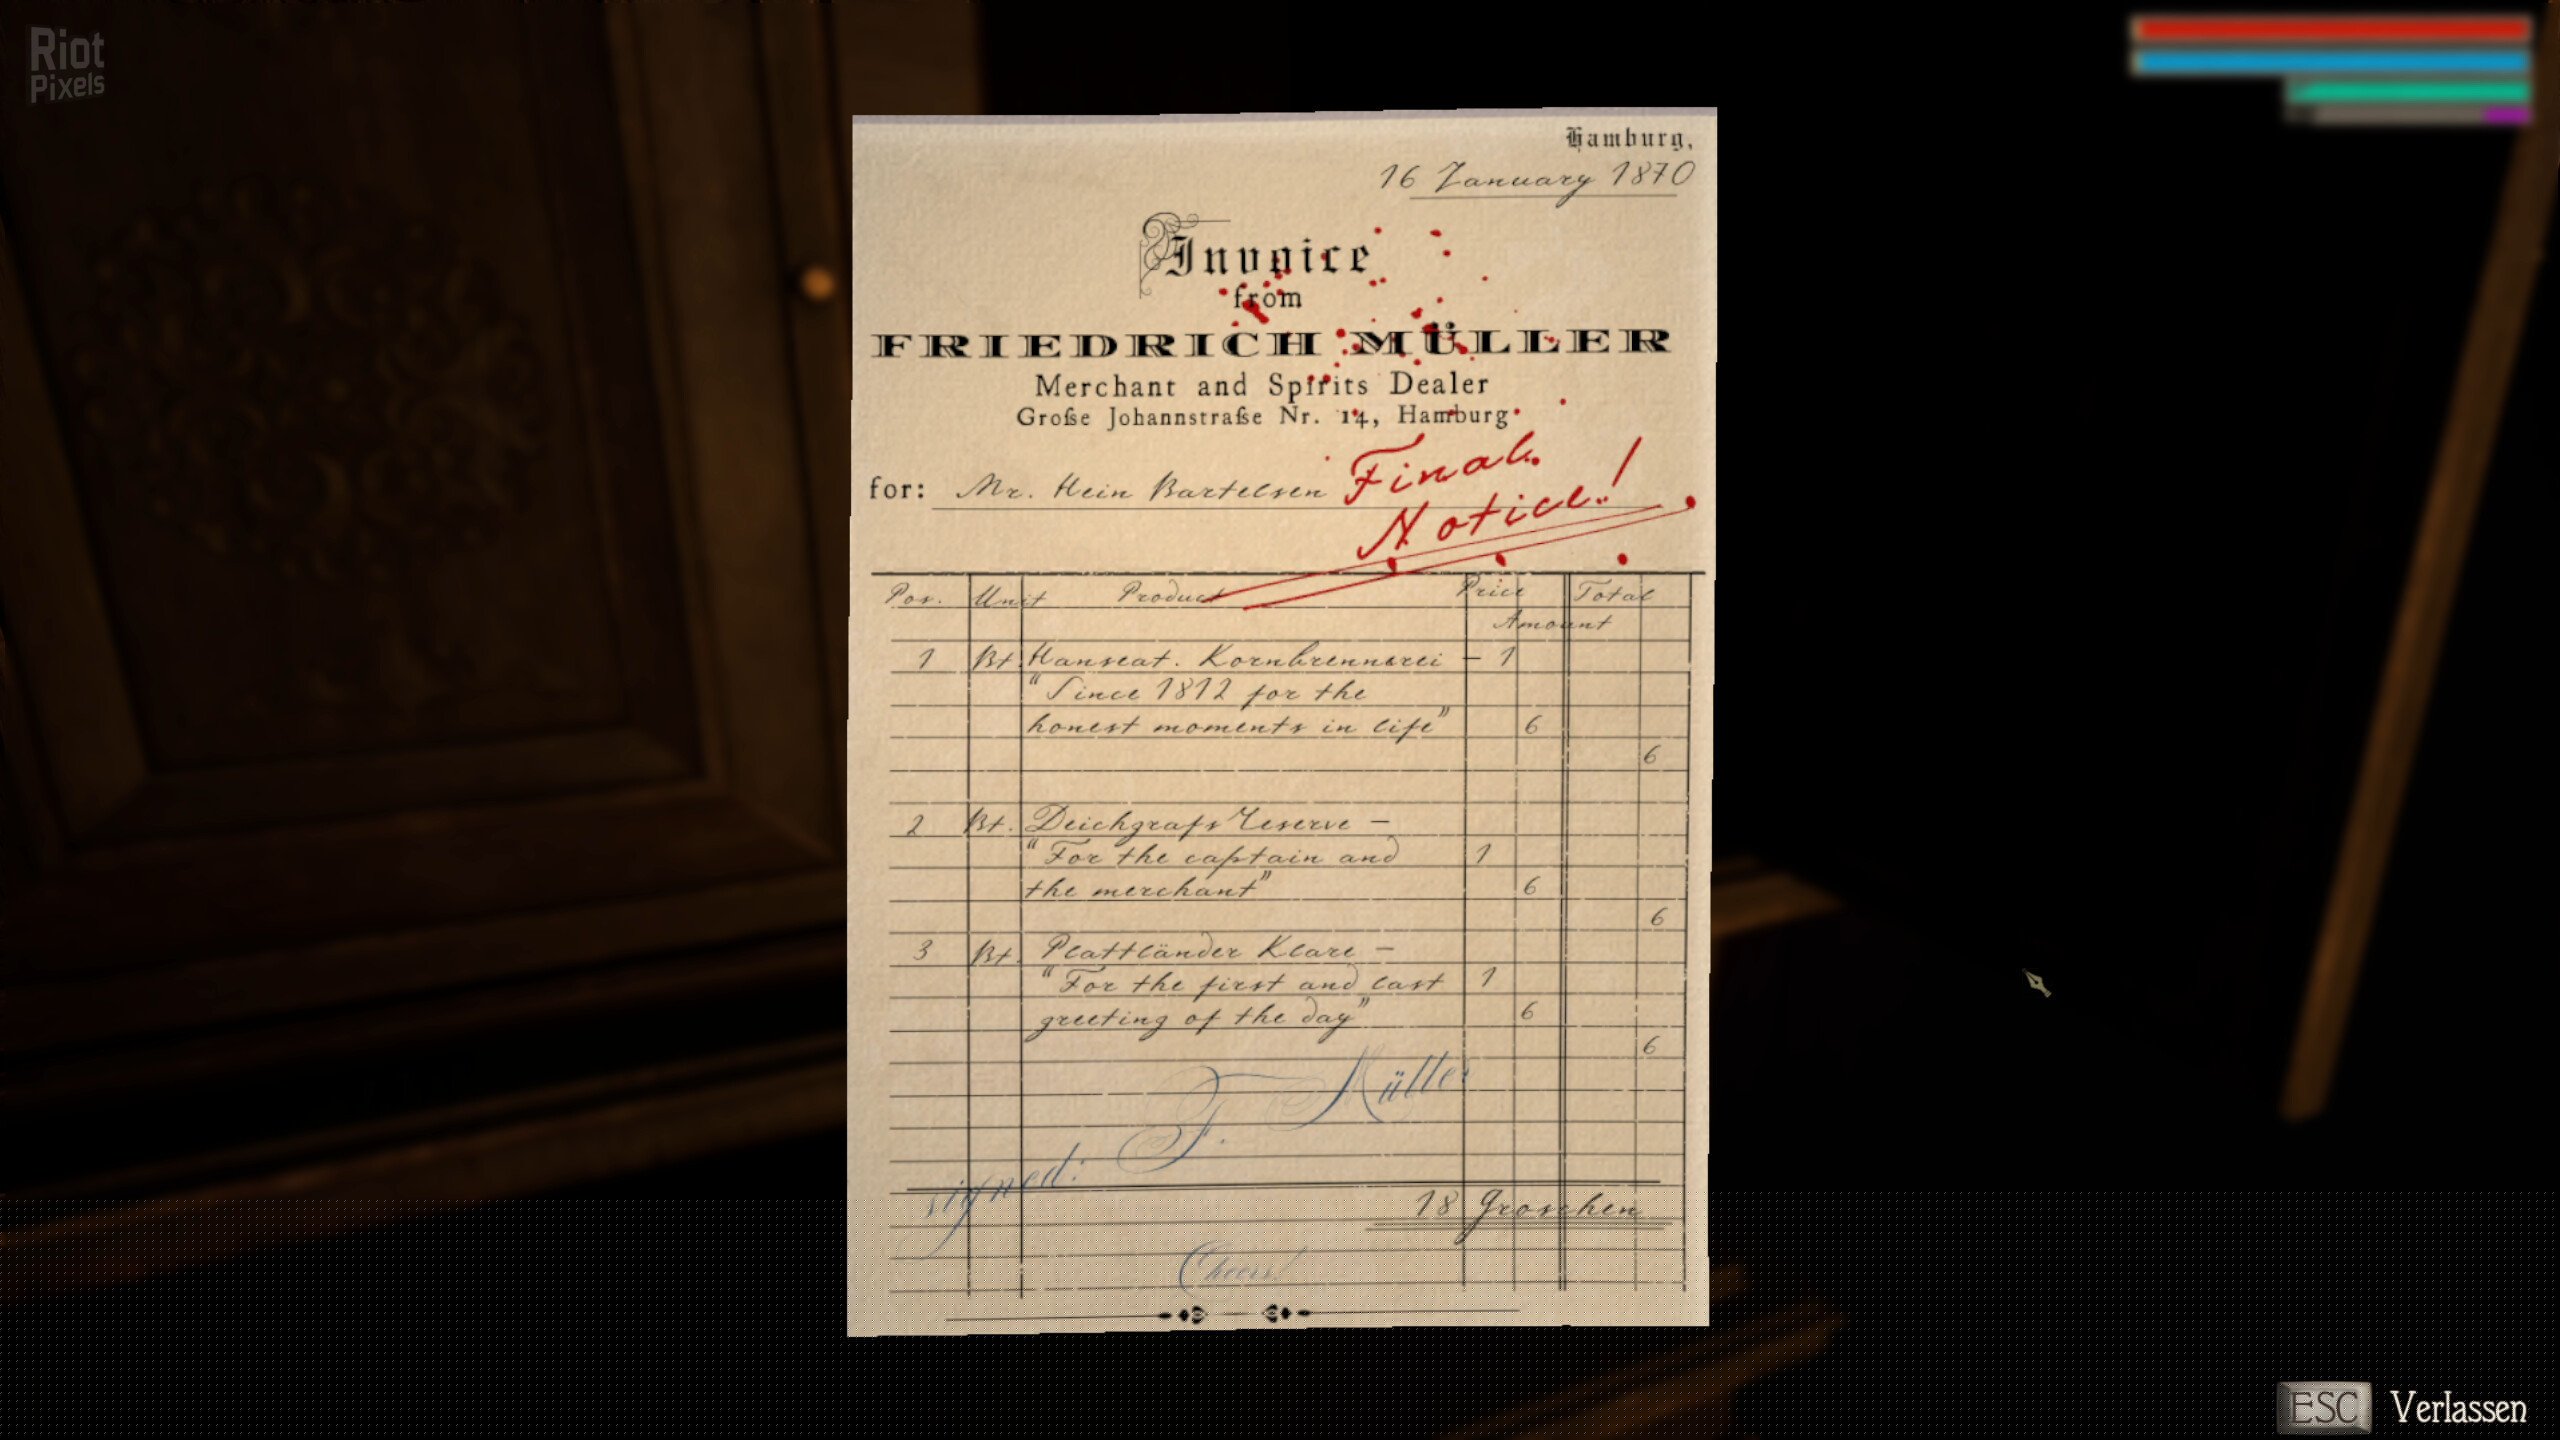 Riot
Pixels
Hamburg,
16 January 1870
Invoice
from
FRIEDRICH MÜLLER
Merchant and Spirits Dealer
Große Johannstraße Nr. 14, Hamburg
for: Mr. Hein Bartelsen
Final
Notice!
Pos. Unit Product Price Total
Amount
1 Bt. Hanseat. Kornbrennerei – 1
"Since 1812 for the
honest moments in life" 6
6
2 Bt. Deichgrafs Reserve –
"For the captain and 1
the merchant" 6
6
3 Bt. Plattländer Klare –
"For the first and last 1
greeting of the day" 6
6
signed: F. Müller
18 Groschen
Cheers!
ESC Verlassen